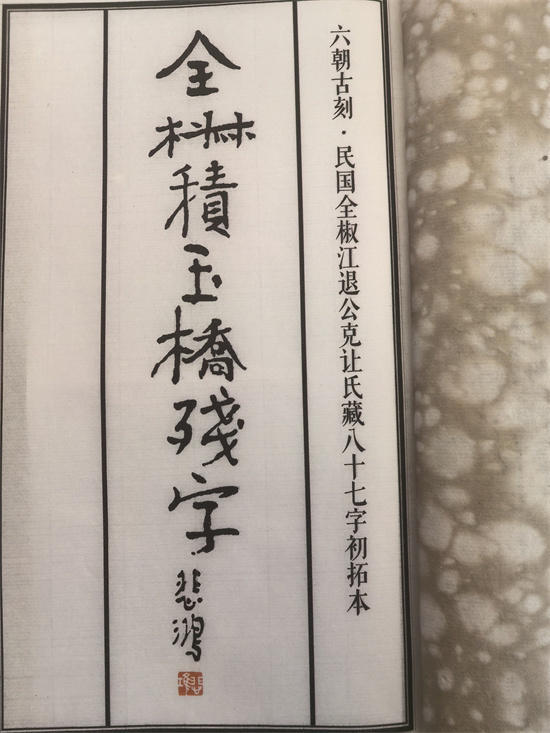 六朝古刻·民国全椒江退公克让氏藏八十七字初拓本
全椒積玉橋殘字
悲鴻